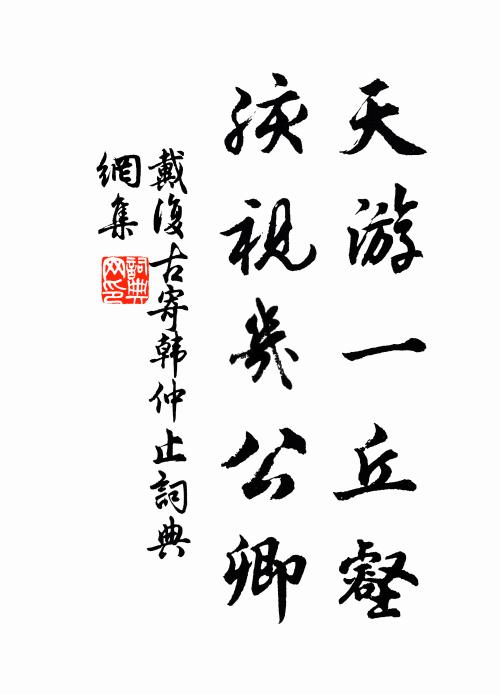 天游一丘壑
孩視幾公卿
戴復古寄韩仲止詞典
網集
詞典網印